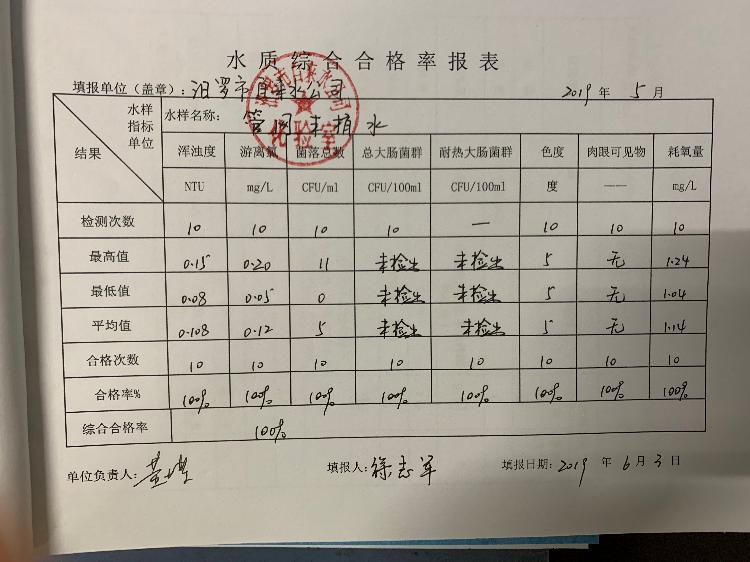 水质综合合格率报表
填报单位(盖章):汨罗市自来水公司 2019 年 5 月
水样 水样名称: 管网末梢水
指标
单位
结果
浑浊度 游离氯 菌落总数 总大肠菌群 耐热大肠菌群 色度 肉眼可见物 耗氧量
NTU mg/L CFU/ml CFU/100ml CFU/100ml 度 —— mg/L
检测次数 10 10 10 10 — 10 10 10
最高值 0.15 0.20 11 未检出 未检出 5 无 1.24
最低值 0.08 0.05 0 未检出 未检出 5 无 1.04
平均值 0.108 0.12 5 未检出 未检出 5 无 1.14
合格次数 10 10 10 10 10 10 10 10
合格率% 100% 100% 100% 100% 100% 100% 100% 100%
综合合格率 100%
单位负责人: 填报人:徐志军 填报日期:2019 年 6 月 3 日
化验室